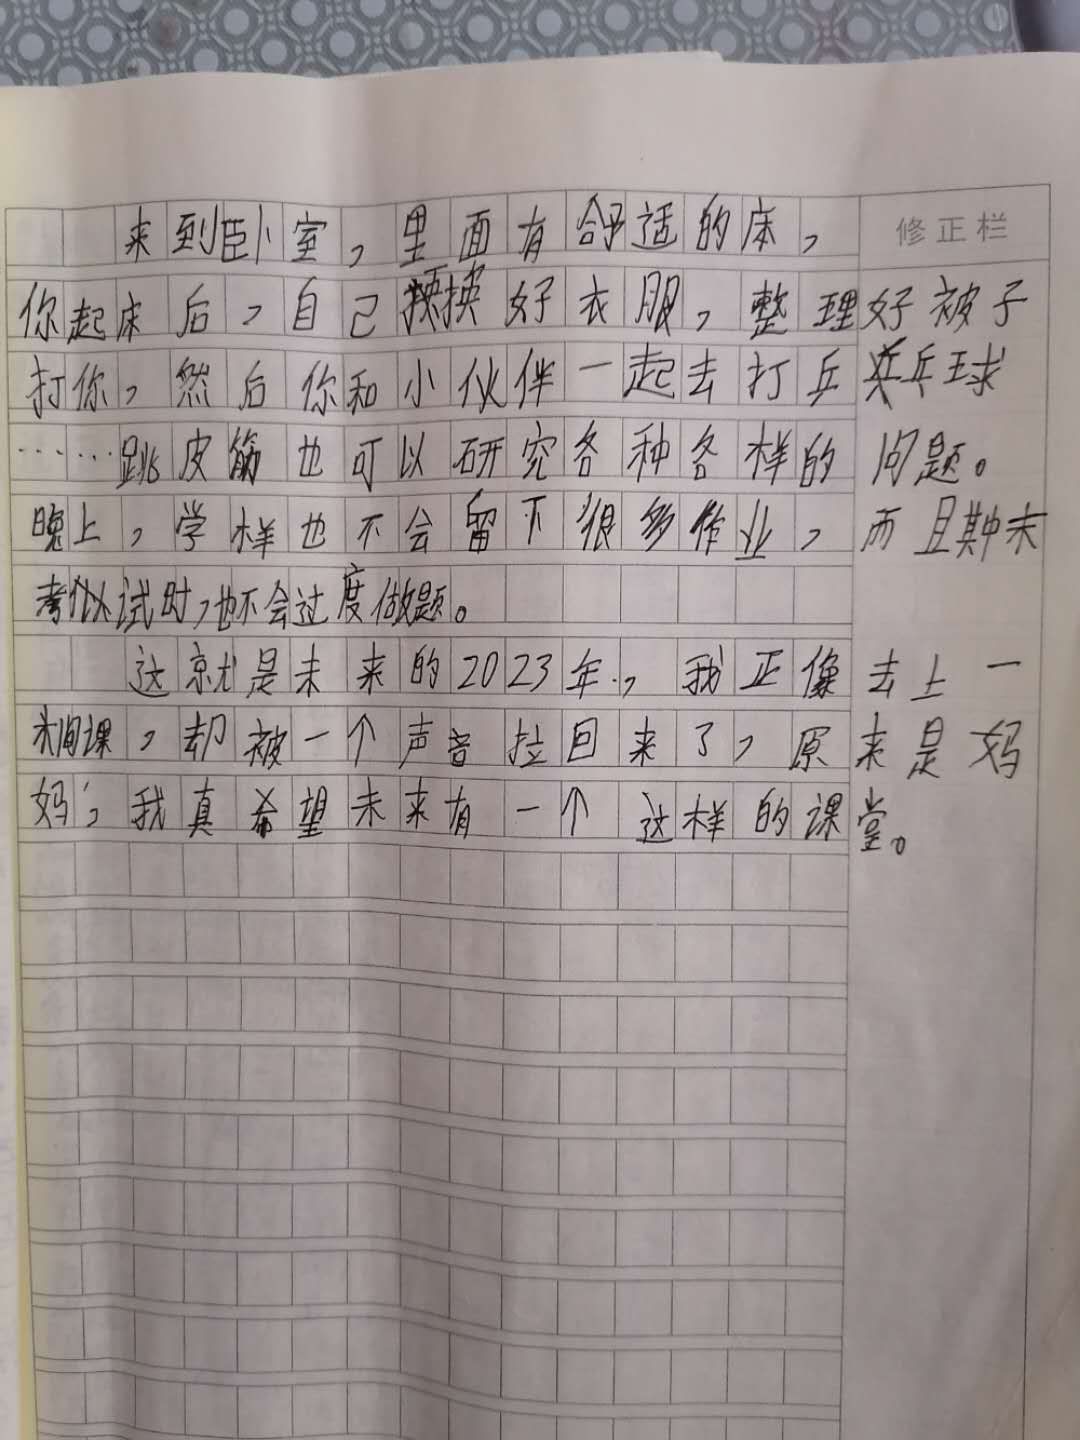 来到卧室，里面有舒适的床，
修正栏
你起床后，自己换好衣服，整理好被子
打你，然后你和小伙伴一起去打乒乓球
……跳皮筋也可以研究各种各样的问题。
晚上，学样也不会留下很多作业，而且期末
考试时，也不会过度做题。
这就是未来的2023年，我正像去上一
间课，却被一个声音拉回来了，原来是妈
妈；我真希望未来有一个这样的课堂。